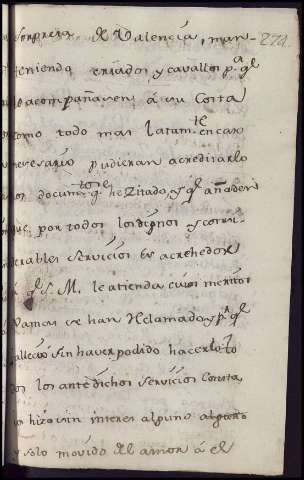 empresas de Valencia, man- 224.
teniendo criados, y cavallos pª q̃
le acompañasen á su Costa
como todo mas latamte en caso
necesario pudieran acreditarlo
los documtos q̃ he Zitado, y q̃ añaden
que por todos los dignos y consi-
derables servicios es acrehedor
á q̃ S. M. le atienda cuios meritos
Jamas se han Reclamado, pr q̃
fallecio sin haver podido hacerlo, to
dos los antedichos servicios Consta,
los hizo sin interes alguno alguno
y solo movido del amor á el